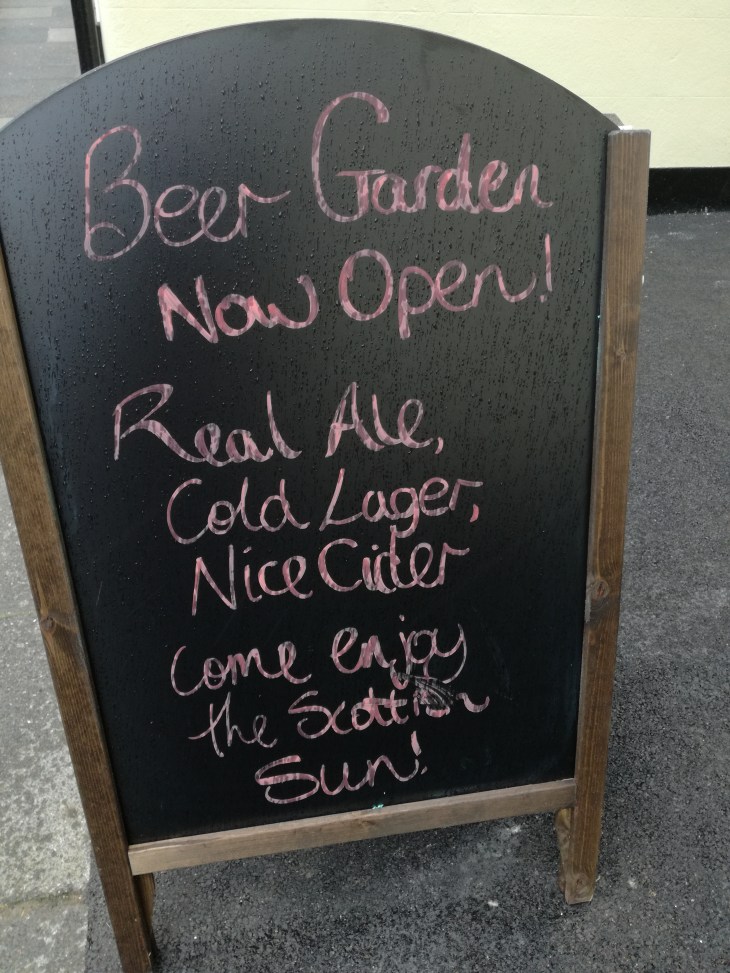 Beer Garden
Now Open!
Real Ale,
Cold Lager,
Nice Cider
Come enjoy
the Scottish
Sun!